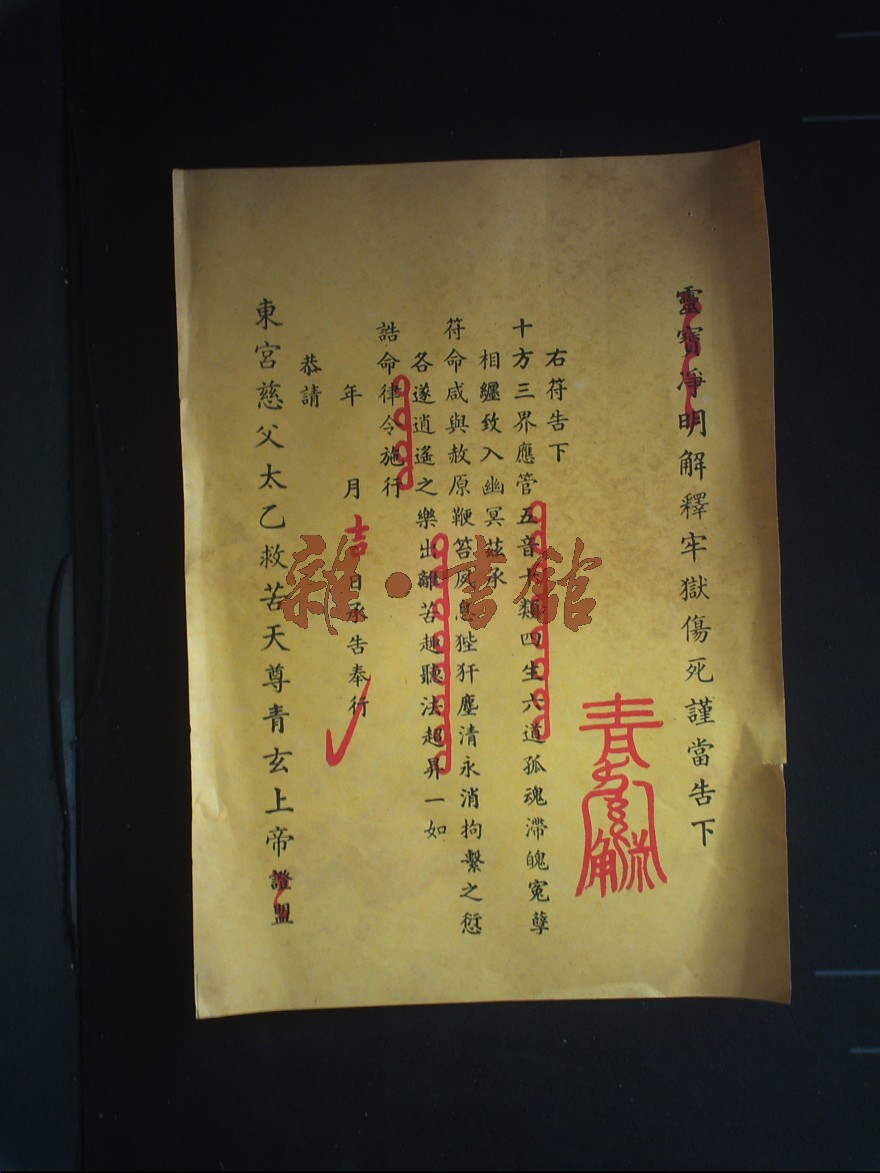 靈寶淨明解釋牢獄傷死謹當告下
右符告下
十方三界應管五音十類四生六道孤魂滯魄寃孽
相纏致入幽冥茲承
符命咸與赦原鞭笞夙息狴犴塵清永消拘繫之愆
各遂逍遙之樂出離苦趣聽法超昇一如
誥命律令施行
年 月吉日承告奉行
恭請
東宮慈父太乙救苦天尊青玄上帝證盟
雜·書館